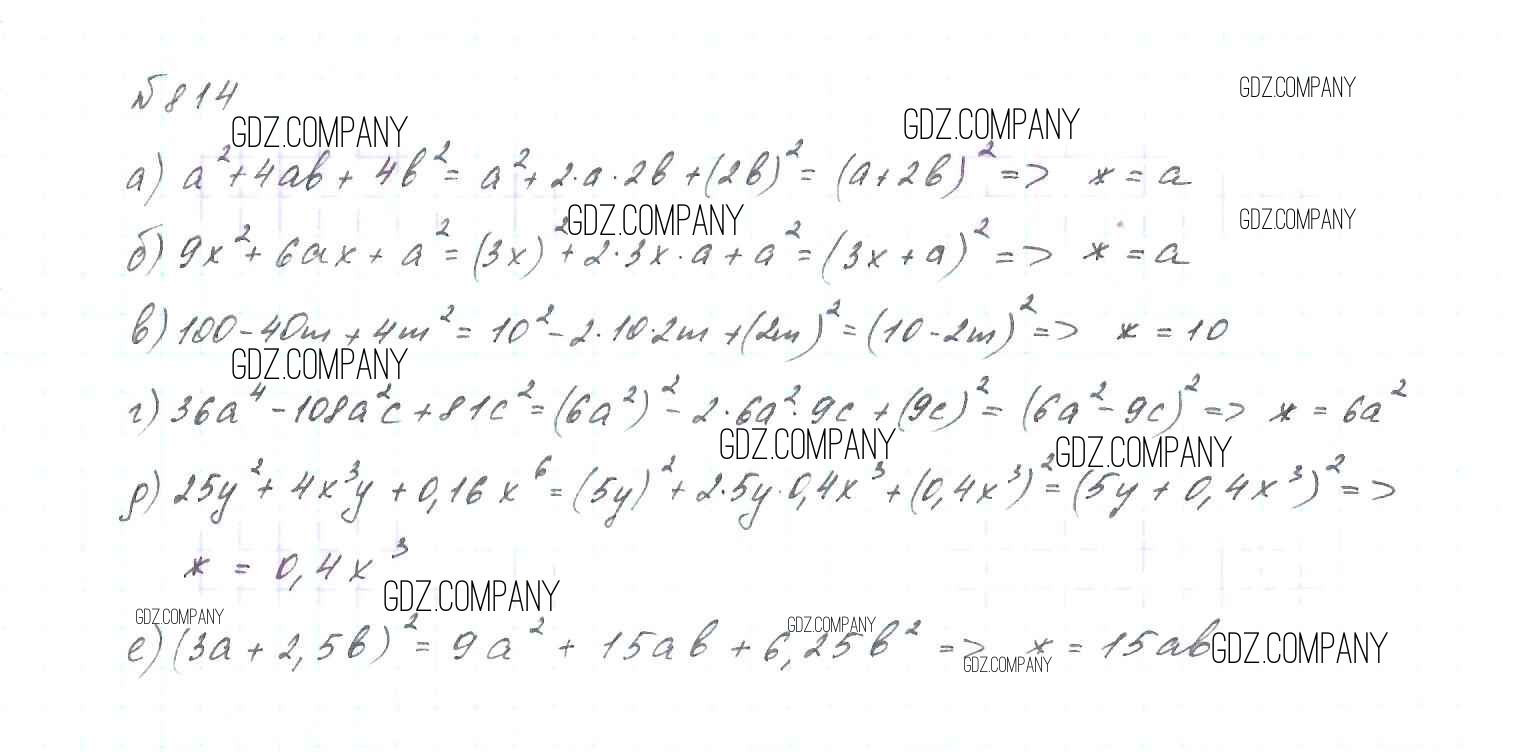 №814
GDZ.COMPANY
GDZ.COMPANY
GDZ.COMPANY
а) a² + 4ab + 4b² = a² + 2·a·2b + (2b)² = (a+2b)² => * = a
GDZ.COMPANY
GDZ.COMPANY
б) 9x² + 6ax + a² = (3x)² + 2·3x·a + a² = (3x + a)² => * = a
в) 100 - 40m + 4m² = 10² - 2·10·2m + (2m)² = (10 - 2m)² => * = 10
GDZ.COMPANY
г) 36a⁴ - 108a²c + 81c² = (6a²)² - 2·6a²·9c + (9c)² = (6a² - 9c)² => * = 6a²
GDZ.COMPANY
GDZ.COMPANY
д) 25y² + 4x³y + 0,16x⁶ = (5y)² + 2·5y·0,4x³ + (0,4x³)² = (5y + 0,4x³)² =>
* = 0,4x³
GDZ.COMPANY
GDZ.COMPANY
GDZ.COMPANY
е) (3a + 2,5b)² = 9a² + 15ab + 6,25b² => * = 15ab
GDZ.COMPANY
GDZ.COMPANY